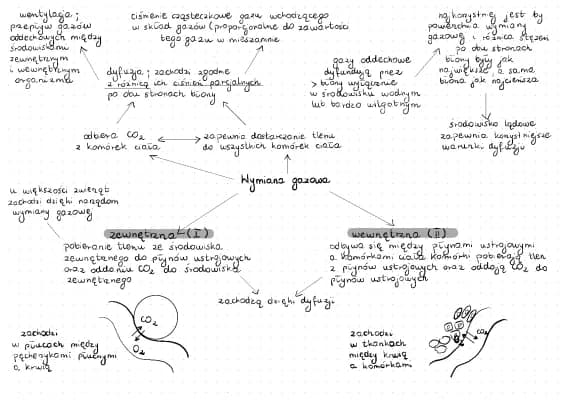 wentylacja;
przepływ gazów
oddechowych między
środowiskiem
zewnętrznym
i wewnętrznym
organizmu
ciśnienie cząsteczkowe gazu wchodzącego
w skład gazów (proporcjonalne do zawartości
tego gazu w mieszaninie
najkorzystniej jest by
powierzchnia wymiany
gazowej i różnica stężeń
po obu stronach
błony były jak
największe, a sama
błona jak najcieńsza
dyfuzja; zachodzi zgodnie
z różnicą ich ciśnień parcjalnych
po obu stronach błony
gazy oddechowe
dyfundują przez
> błony wyłącznie
w środowisku wodnym
lub bardzo wilgotnym
środowisko lądowe
zapewnia korzystniejsze
warunki dyfuzji
odbiera CO2
z komórek ciała
zapewnia dostarczanie tlenu
do wszystkich komórek ciała
Wymiana gazowa
u większości zwierząt
zachodzi dzięki narządom
wymiany gazowej
zewnętrzna (I)
pobieranie tlenu ze środowiska
zewnętrznego do płynów ustrojowych
oraz oddaniu CO2 do środowiska
zewnętrznego
wewnętrzna (II)
odbywa się między płynami ustrojowymi
a komórkami ciała komórki pobierają tlen
z płynów ustrojowych oraz oddają CO2 do
płynów ustrojowych
zachodzą dzięki dyfuzji
zachodzi
w płucach między
pęcherzykami płucnymi
a krwią
CO2
O2
zachodzi
w tkankach
między krwią
a komórkami
CO2